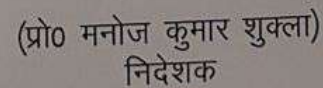 (प्रो0 मनोज कुमार शुक्ला)
निदेशक